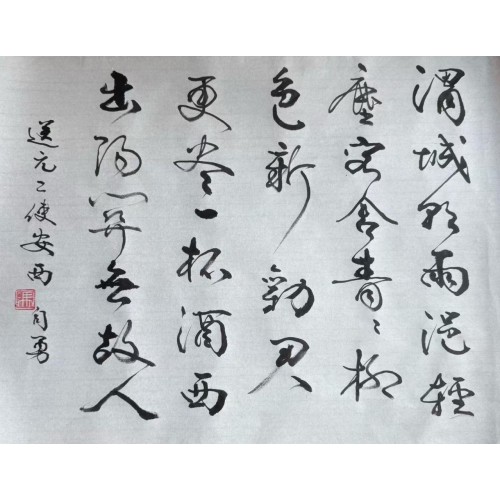 渭城朝雨浥輕
塵客舍青〻柳
色新勸君
更尽一杯酒西
出陽關無故人
送元二使安西 自勇